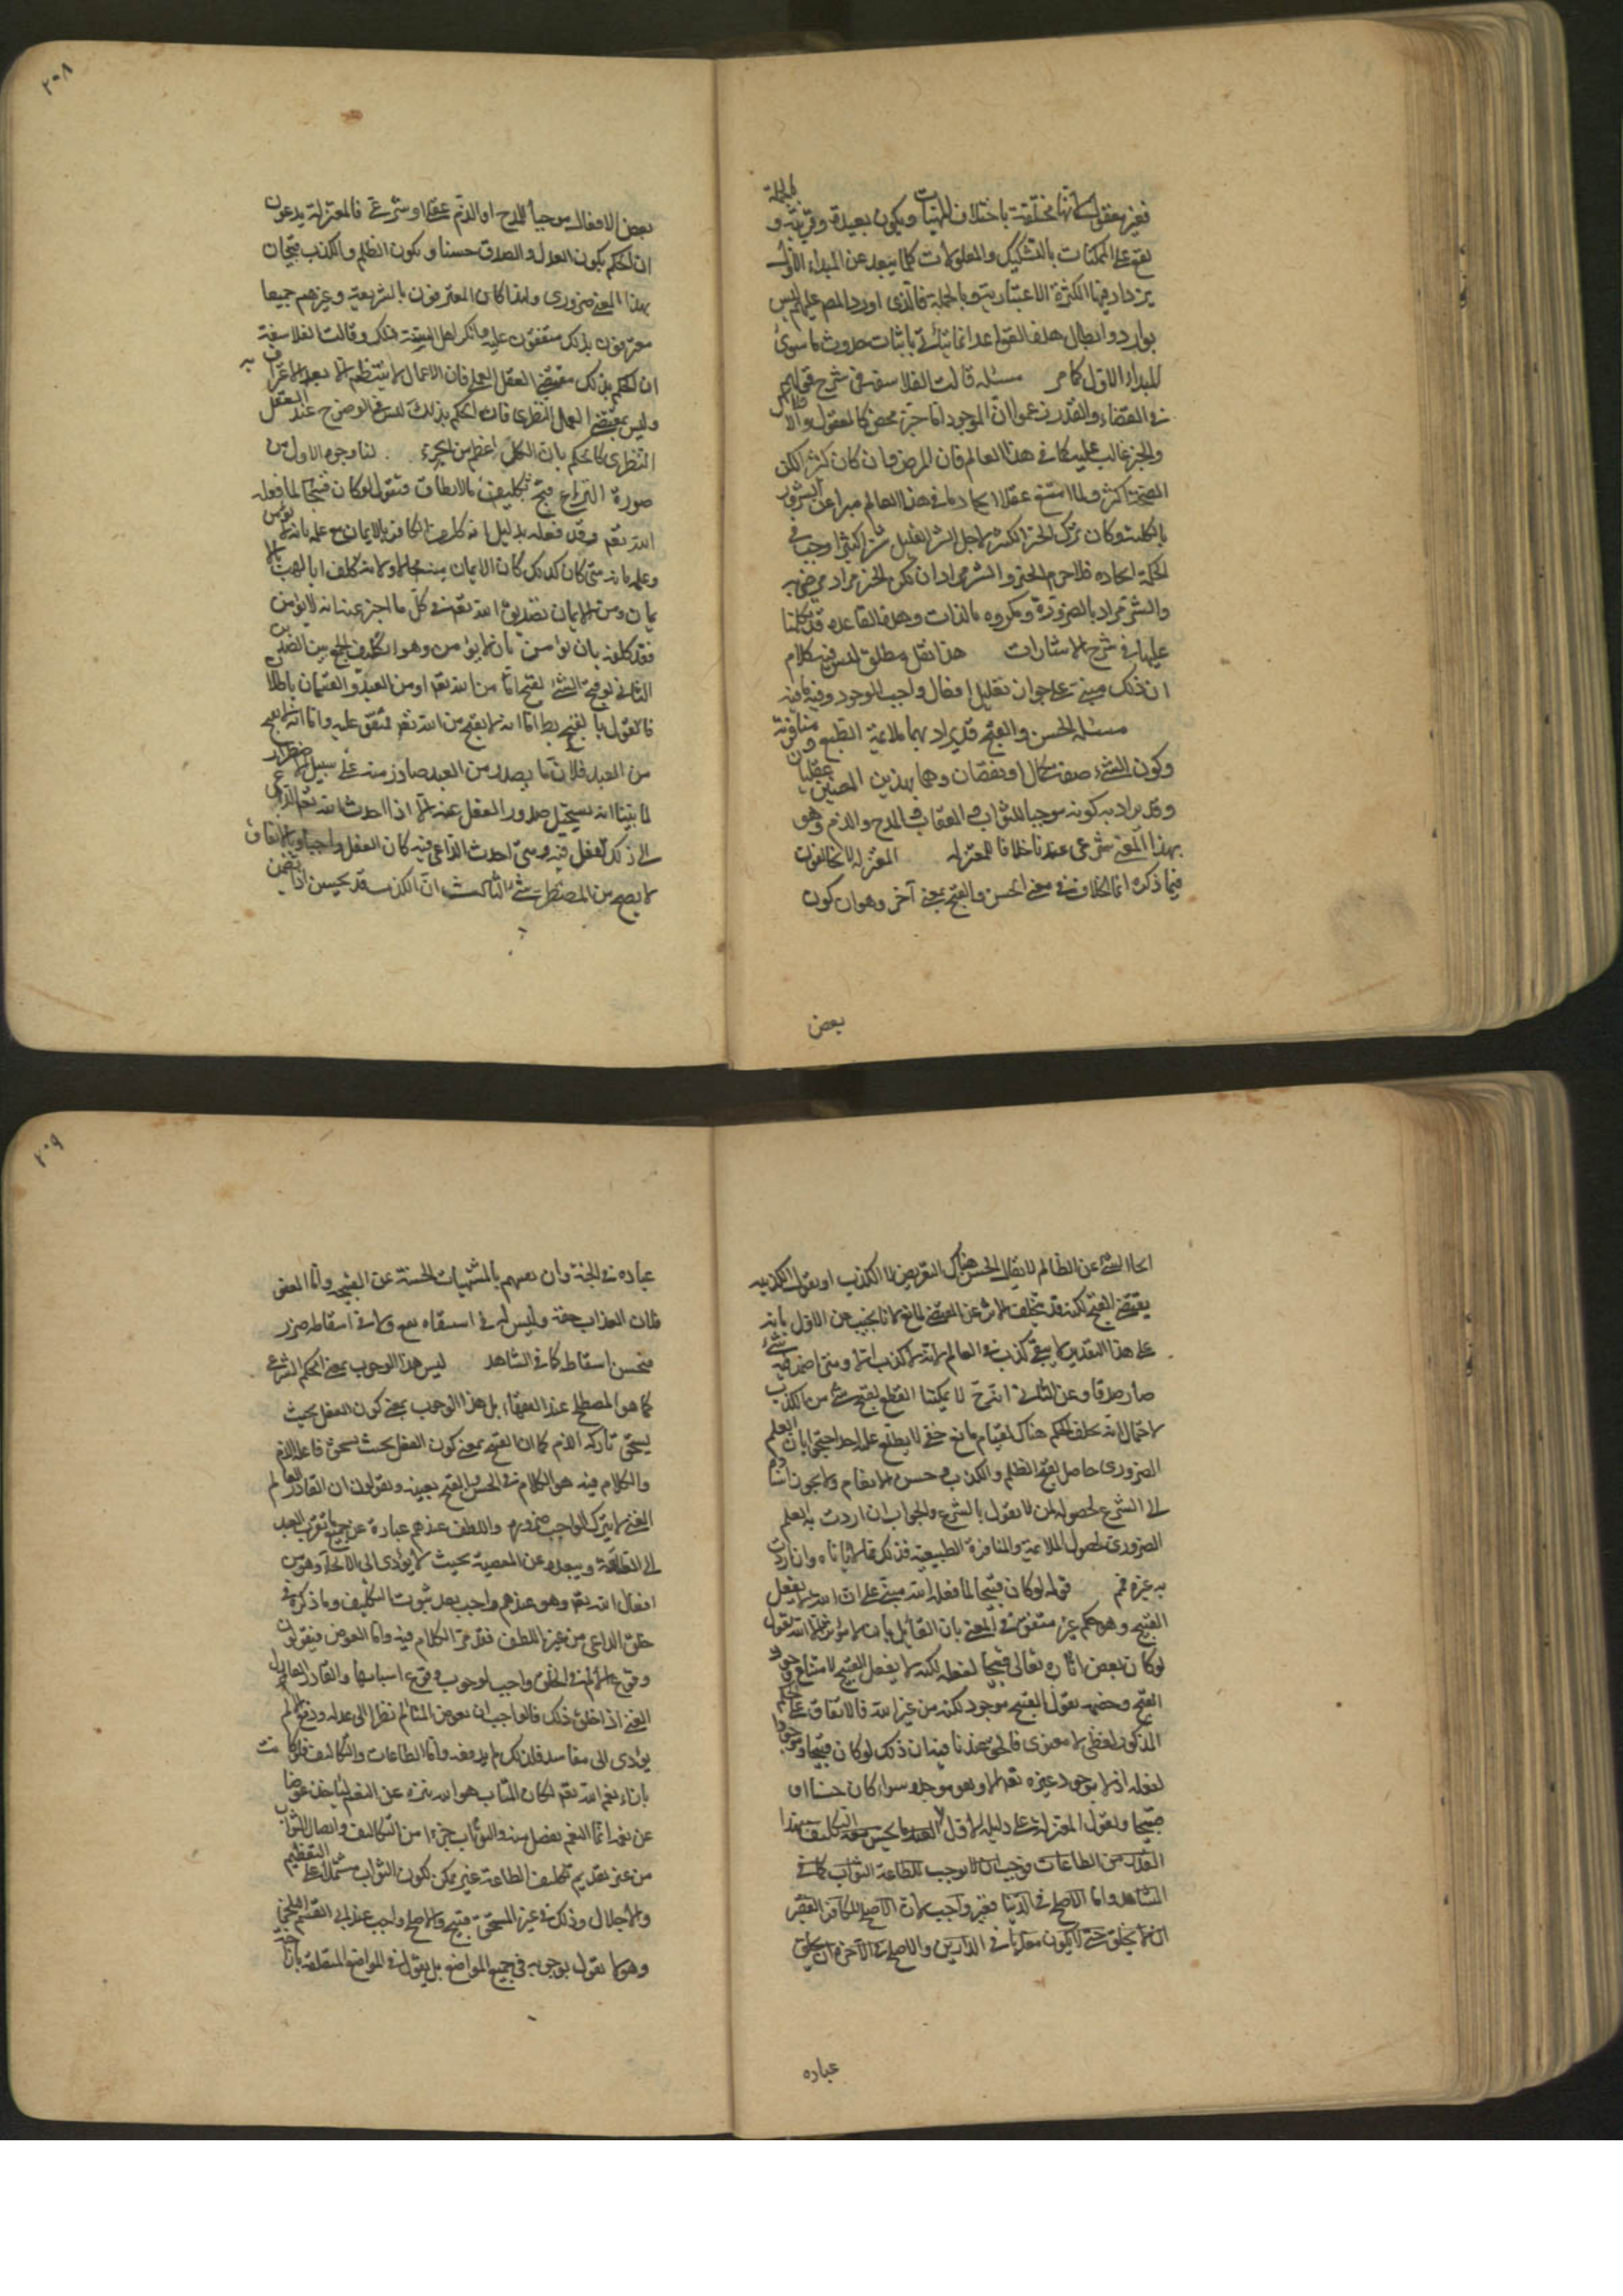 بالجملة
فغير معقول لكانها مختلفة باختلاف المهيات ويكون بعيدة وقريبة و
يقع على الممكنات بالتشكيك والمعلولات كلما يبعد عن المبداء الاول
يزداد فيها الكثرة الاعتبارية وبالجملة فالذى اورد المص عليهم ليس
بوارد وابطال هذه القواعد انما يتأتى باثبات حدوث ما سوى
المبداء الاول كما مر مسئلة قالت الفلاسفة فى شرح قولهم
فى القضاء والقدر زعموا ان الموجود اما خير محض كالعقول والافلاك
والخير غالب عليه كما فى هذا العالم فان المرض وان كان كثيرا لكن
الصحة اكثر ولما امتنع عقلا ايجاد ما فى هذا العالم مبرا عن الشرور
بالكلية وكان ترك الخير الكثير لاجل الشر القليل شرا كثيرا وجب فى
الحكمة ايجاده فلا جرم الخير والشر مرادان لكن الخير مراد مرضى به
والشر مراد بالضرورة ومكروه بالذات وهذه القاعدة قد تكلمنا
عليها فى شرح الاشارات هذا نقل مطلق ليس فيه كلام
ان ذلك مبنى على جواز تعليل افعال واجب الوجود وفيه ما فيه
مسئلة الحسن والقبح قد يراد بهما ملائمة الطبع ومنافرته
وكون الشىء صفة كمال او نقصان وهما بهذين المعنيين عقليان
وقد يراد به كونه موجبا للثواب والعقاب والمدح والذم وهو
بهذا المعنى شرعى عندنا خلافا للمعتزلة المعتزلة لا يخالفون
فيما ذكره انما الخلاف فى معنى الحسن والقبح بمعنى آخر وهو ان كون
بعض
٢٠٨
بعض الافعال موجبا للمدح او الذم عقلى او شرعى فالمعتزلة يدعون
ان الحكم بكون العدل والصدق حسنا وبكون الظلم والكذب قبيحان
بهذا المعنى ضرورى ولهذا كان المعترفون بالشريعة وغيرهم جميعا
معترفون بذلك متفقون عليه وانكر اهل السنة ذلك وقالت الفلاسفة
ان الحكم بذلك مقتضى العقل العملى فان الاعمال لا ينتظم الا بعد الاعتراف به
وليس بمقتضى العقل النظرى فان الحكم بذلك ليس فى الوضوح عند العقل
النظرى كالحكم بان الكل اعظم من الجزء لنا وجوه الاول من
صورة النزاع قبح تكليف ما لا يطاق فنقول لو كان قبيحا لما فعله
الله تعم وقد فعله بدليل انه كلف الكافر بالايمان مع علمه بانه لا يؤمن
وعلمه بانه متى كان كذلك كان الايمان منه محالا ولانه كلف ابا لهب بالا
يمان ومن الايمان تصديق الله تعم فى كل ما اخبر عنه انه لا يؤمن
فقد كلفه بان يؤمن بان لا يؤمن وهو تكليف الجمع بين الضدين
الثانى لو قبح الشىء لقبح اما من الله تعم او من العبد والقسمان باطلان
فالقول بالقبح بط اما انه لا يقبح من الله تعم فمتفق عليه واما انه لا يقبح
من العبد فلان ما يصدر من العبد صادر منه على سبيل الاضطرار
لما بينا انه يستحيل صدور الفعل عنه الا اذا احدث الله تعم الداعى
الى ذلك الفعل فيه ومتى احدث الداعى فيه كان الفعل واجبا وبالاتفاق
لا يصح من المضطر شىء الثالث ان الكذب قد يحسن اذا تضمن
انجاء النبى عن الظالم لا يقال الحسن هناك التعريض لا الكذب او نقول الكذب
يقتضى القبح لكنه قد يتخلف الاثر عن المقتضى لمانع لانا نجيب عن الاول بانه
على هذا التقدير لا يبقى كذب فى العالم لانه لا كذب الا ومتى اضمر فيه شىء
صار صدقا وعن الثانى انه ح لا يمكننا القطع بقبح شىء من الكذب
لاحتمال انه تخلف الحكم هناك لقيام مانع خفى لا يطلع عليه احد احتجوا بان العلم
الضرورى حاصل بقبح الظلم والكذب وحسن الانعام ولا يجوز اسناده
الى الشرع لحصوله لمن لا يقول بالشرع والجواب ان اردت به العلم
الضرورى بحصول الملائمة والمنافرة الطبيعية فذلك مما لا نأباه وان اردت
به غيره فمم قوله لو كان قبيحا لما فعله الله مبنى على ان الله لا يفعل
القبيح وهو حكم غير متفق فى المعنى بان القائل بان لا مؤثر الا الله يقول
لو كان بعض اثاره تعالى قبيحا لفعله لكنه لا يفعل القبيح لامتناع وجود
القبح وخصمه يقول القبيح موجود لكنه من غير الله فالاتفاق على الحكم
المذكور لفظى لا معنوى فالحق عندنا فيه ان ذلك لو كان قبيحا وموجودا
لفعله اذ لا موجود غيره تعم الا وهو موجده سواء كان حسنا او
قبيحا ويقول المعتزلة على دليله الاول
القدر من الطاعات فوجب ان لا يوجب للطاعة الثواب كما فى
الشاهد واما الاصلح فى الدنيا فغير واجب لان الاصلح للكافر الفقير
ان لا يخلق حتى لا يكون معذبا فى الدارين والاصلح فى الآخرة ان يخلق
عباده
٢٠٩
عباده فى الجنة وان يغنيهم بالمشتهيات الحسنة عن القبيحة واما العفو
فلان العذاب حقه وليس له فى استيفاءه نفع ولا فى اسقاطه ضرر
فحسن اسقاطه كما فى الشاهد ليس هذا الوجوب بمعنى الحكم الشرعى
كما هو المصطلح عند الفقهاء بل هذا الوجوب بمعنى كون الفعل بحيث
يستحق تاركه الذم كما ان القبح بمعنى كون الفعل بحيث يستحق فاعله الذم
والكلام فيه هو الكلام فى الحسن والقبح بعينه ويقولون ان القادر العالم
الغنى لا يترك الواجب ضرورة واللطف عندهم عبارة عن جميع ما يقرب العبد
الى الطاعة ويبعده عن المعصية بحيث لا يؤدى الى الالجاء وهو من
افعال الله تعم وهو عندهم واجب بعد ثبوت التكليف وما ذكره فى
خلق الداعى من غير اللطف فقد مر الكلام فيه واما العوض فيقولون
وقوع الالم فى الخلق واجب لوجوب وقوع اسبابها والقادر العادل
الغنى اذا خلق ذلك فالواجب ان يعوض المتألم نظرا الى عدله ودفع الالم
يؤدى الى مفاسد فلذلك لم يدفعه واما الطاعات والتكاليف فلو كانت
بازاء نعم الله تعم لكان المثاب هو الله منزه عن النعم ليأخذ عوضا
عن نعمه انما النعم تفضل منه والثواب جزءا من التكاليف وايصال الثواب
من غير تقديم تكليف الطاعة غير ممكن لكون الثواب مشتملا على التعظيم
والاجلال وذلك فى غير المستحق قبيح والاصلح واجب عند ابى القسم البلخى
وهو لا يقول بوجوبه فى جميع المواضع بل يقول فى المواضع المتعلقة بان